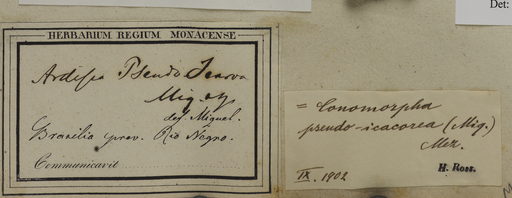 Det:
HERBARIUM REGIUM MONACENSE
Ardisia Pseudo Icacorea
Miq.
det Miquel.
Brasilia prov. Rio Negro.
Communicavit
= Conomorpha
pseudo-icacorea (Miq.)
Mez.
H. Ross.
IX. 1902